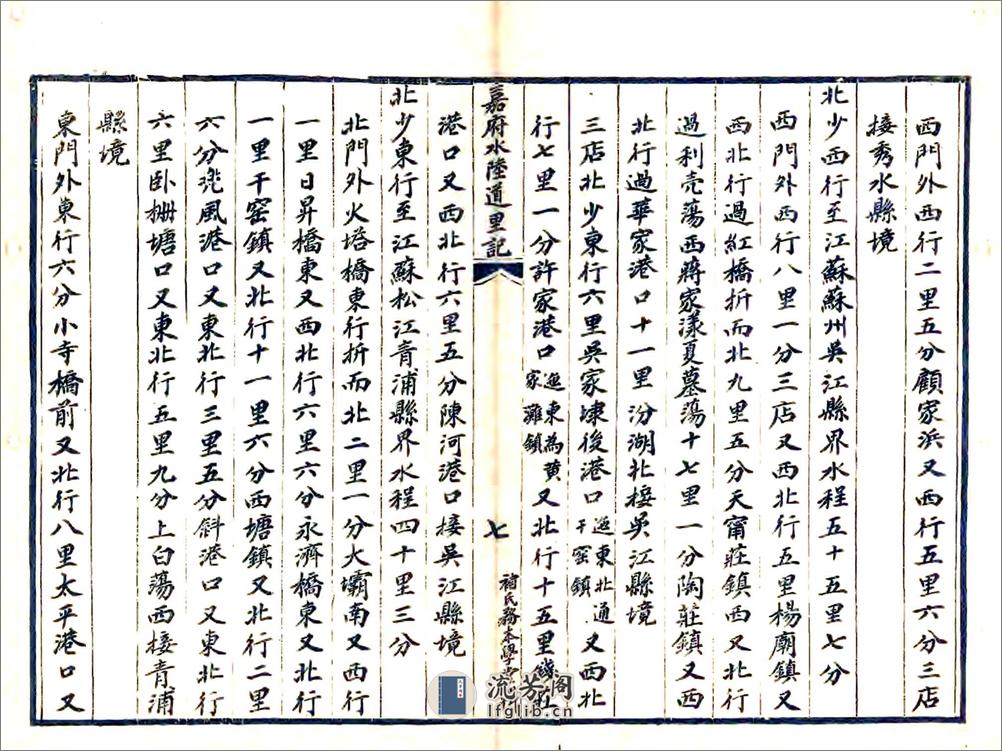 西門外西行二里五分顧家浜又西行五里六分三店
接秀水縣境
北少西行至江蘇蘇州吳江縣界水程五十五里七分
西門外西行八里一分三店又西北行五里楊廟鎮又
西北行過紅橋折而北九里五分天甯莊鎮西又北行
過利壳蕩西蔣家漾夏墓蕩十七里一分陶莊鎮又西
北行過華家港口十一里汾湖北接吳江縣境
三店北少東行六里吳家埭後港口迤東北通干窑鎮又西北
行七里一分許家港口迤東為黄家灘鎮又北行十五里錢家
嘉府水陸道里記
七
褚氏務本學堂
港口又西北行六里五分陳河港口接吳江縣境
北少東行至江蘇松江青浦縣界水程四十里三分
北門外火塔橋東行折而北二里一分大壩南又西行
一里日昇橋東又西北行六里六分永濟橋東又北行
一里干窑鎮又北行十一里六分西塘鎮又北行二里
六分兜風港口又東北行三里五分斜港口又東北行
六里卧柵塘口又東北行五里九分上白蕩西接青浦
縣境
東門外東行六分小寺橋前又北行八里太平港口又
流芳閣
lfglib.cn